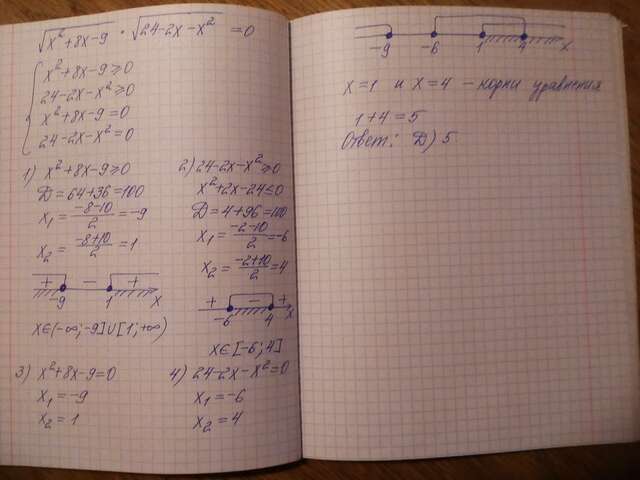 √(x²+8x-9) · √(24-2x-x²) = 0
x²+8x-9≥0
24-2x-x²≥0
x²+8x-9=0
24-2x-x²=0
1) x²+8x-9≥0
D=64+36=100
x₁ = (-8-10)/2 = -9
x₂ = (-8+10)/2 = 1
+ - +
-9 1 x
x∈(-∞;-9]∪[1;+∞)
2) 24-2x-x²≥0
x²+2x-24≤0
D=4+96=100
x₁ = (-2-10)/2 = -6
x₂ = (-2+10)/2 = 4
+ - +
-6 4 x
x∈[-6;4]
3) x²+8x-9=0
x₁ = -9
x₂ = 1
4) 24-2x-x²=0
x₁ = -6
x₂ = 4
-9 -6 1 4 x
x=1 и x=4 - корни уравнения
1+4=5
Ответ: Д) 5